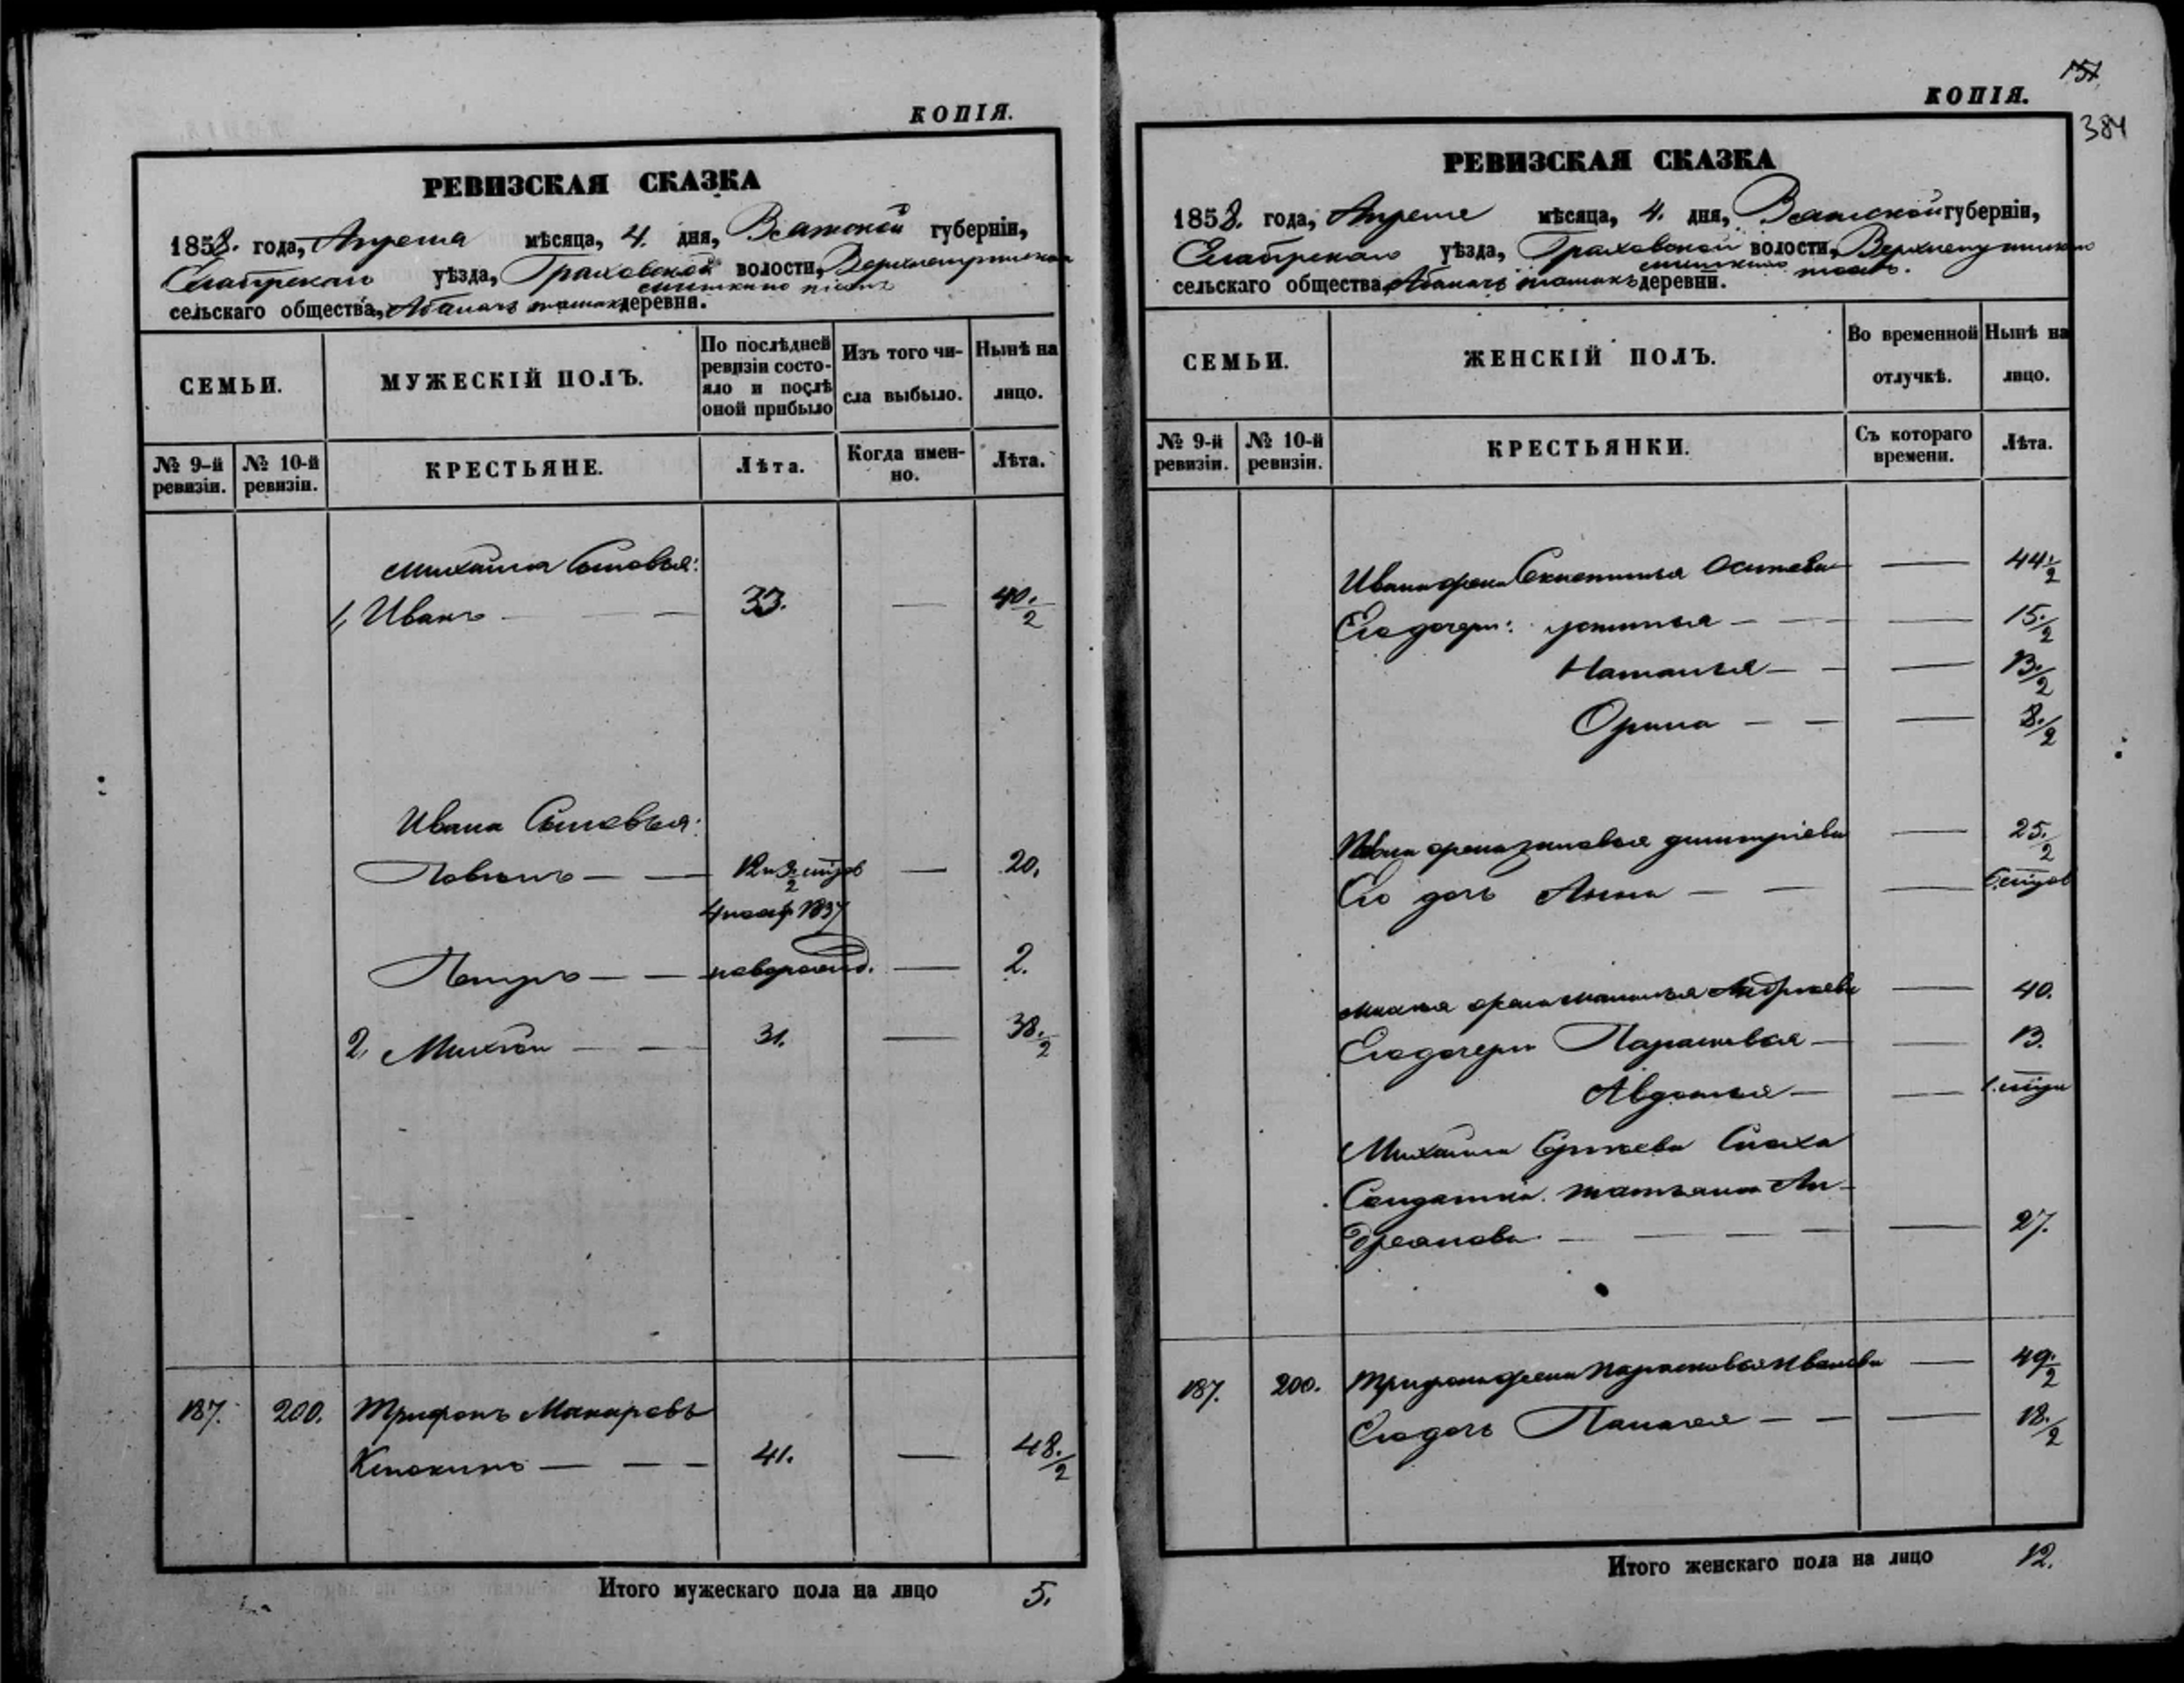 КОПІЯ.
РЕВИЗСКАЯ СКАЗКА
1858. года, Апреля мѣсяца, 4. дня, Вятской губерніи,
Елабугскаго уѣзда, Граховской волости,
сельскаго общества, деревня.
СЕМЬИ.
МУЖЕСКІЙ ПОЛЪ.
По послѣдней ревизіи состояло и послѣ оной прибыло
Изъ того числа выбыло.
Нынѣ на лицо.
№ 9-й ревизіи.
№ 10-й ревизіи.
КРЕСТЬЯНЕ.
Лѣта.
Когда именно.
Лѣта.
Михаила Сыновья:
1, Иванъ — — 33. — 40./2
Ивана Сыновья:
Павелъ — — — 20.
Петръ — — новорожд. — 2.
2, Михѣй — — 31. — 38./2
187. 200. Трифонъ Макаровъ
— — — 41. — 48./2
Итого мужескаго пола на лицо 5.
КОПІЯ.
151
384
РЕВИЗСКАЯ СКАЗКА
1858. года, Апреля мѣсяца, 4. дня, Вятской губерніи,
Елабугскаго уѣзда, Граховской волости,
сельскаго общества, деревни.
СЕМЬИ.
ЖЕНСКІЙ ПОЛЪ.
Во временной отлучкѣ.
Нынѣ на лицо.
№ 9-й ревизіи.
№ 10-й ревизіи.
КРЕСТЬЯНКИ.
Съ котораго времени.
Лѣта.
Ивана жена Осипова — 44 1/2
Его дочери: Устинья — — — 15./2
Наталья — — — 13./2
Орина — — — 8./2
Павла жена Зиновья Димитріева — 25./2
Его дочь Анна — — —
Михѣя жена Андреева — 40.
Его дочери Парасковья — — 13.
Авдотья — —
Михаила Сноха
Солдатка Татьяна Ан-
дреянова — — — — 27.
187. 200. Трифона жена Парасковья Иванова — 49./2
Его дочь Палагея — — — 18./2
Итого женскаго пола на лицо 12.